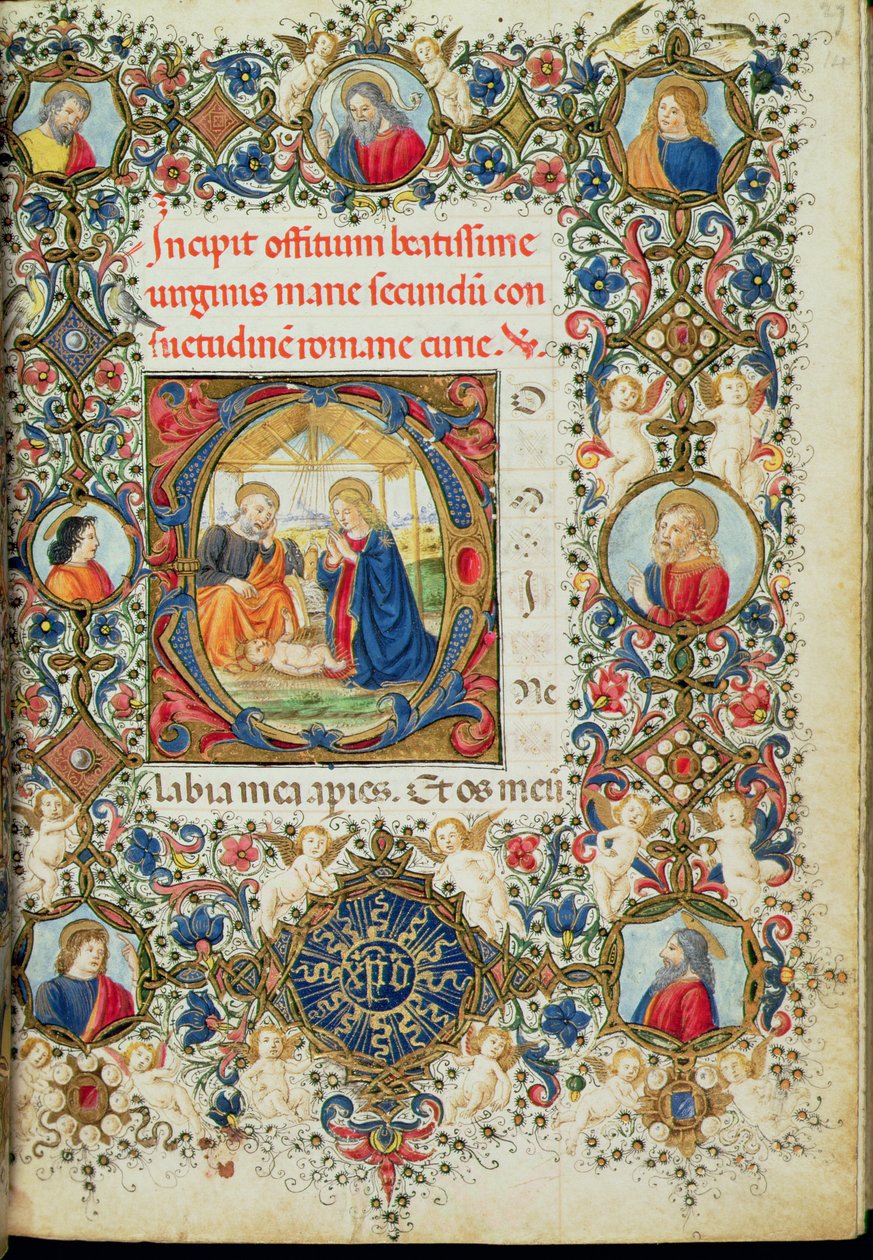 Incipit offitium beatissime
uirginis marie secundū con
suetudinē romane curie. 
D
O
M
I
Ne
labia mea apies. Et os meū